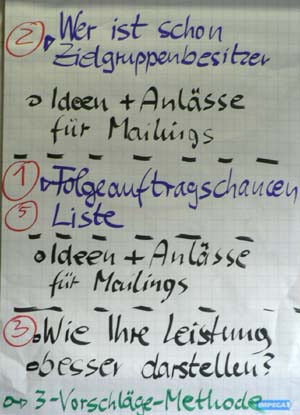 ② Wer ist schon
Zielgruppenbesitzer
Ideen + Anlässe
für Mailings
① Folgeauftragschancen
⑤ Liste
Ideen + Anlässe
für Mailings
③ Wie Ihre Leistung
besser darstellen?
→ 3-Vorschläge-Methode
IMPEGA